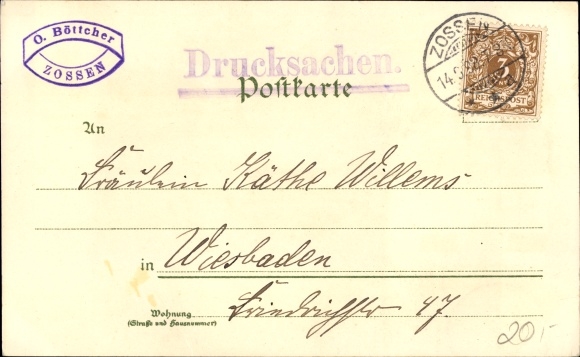 O. Böttcher
ZOSSEN
Drucksachen.
Postkarte
ZOSSEN
14
3
REICHSPOST
An
Fräulein Käthe Willems
in Wiesbaden
Wohnung
(Straße und Hausnummer)
Friedrichstr 47.
20,-